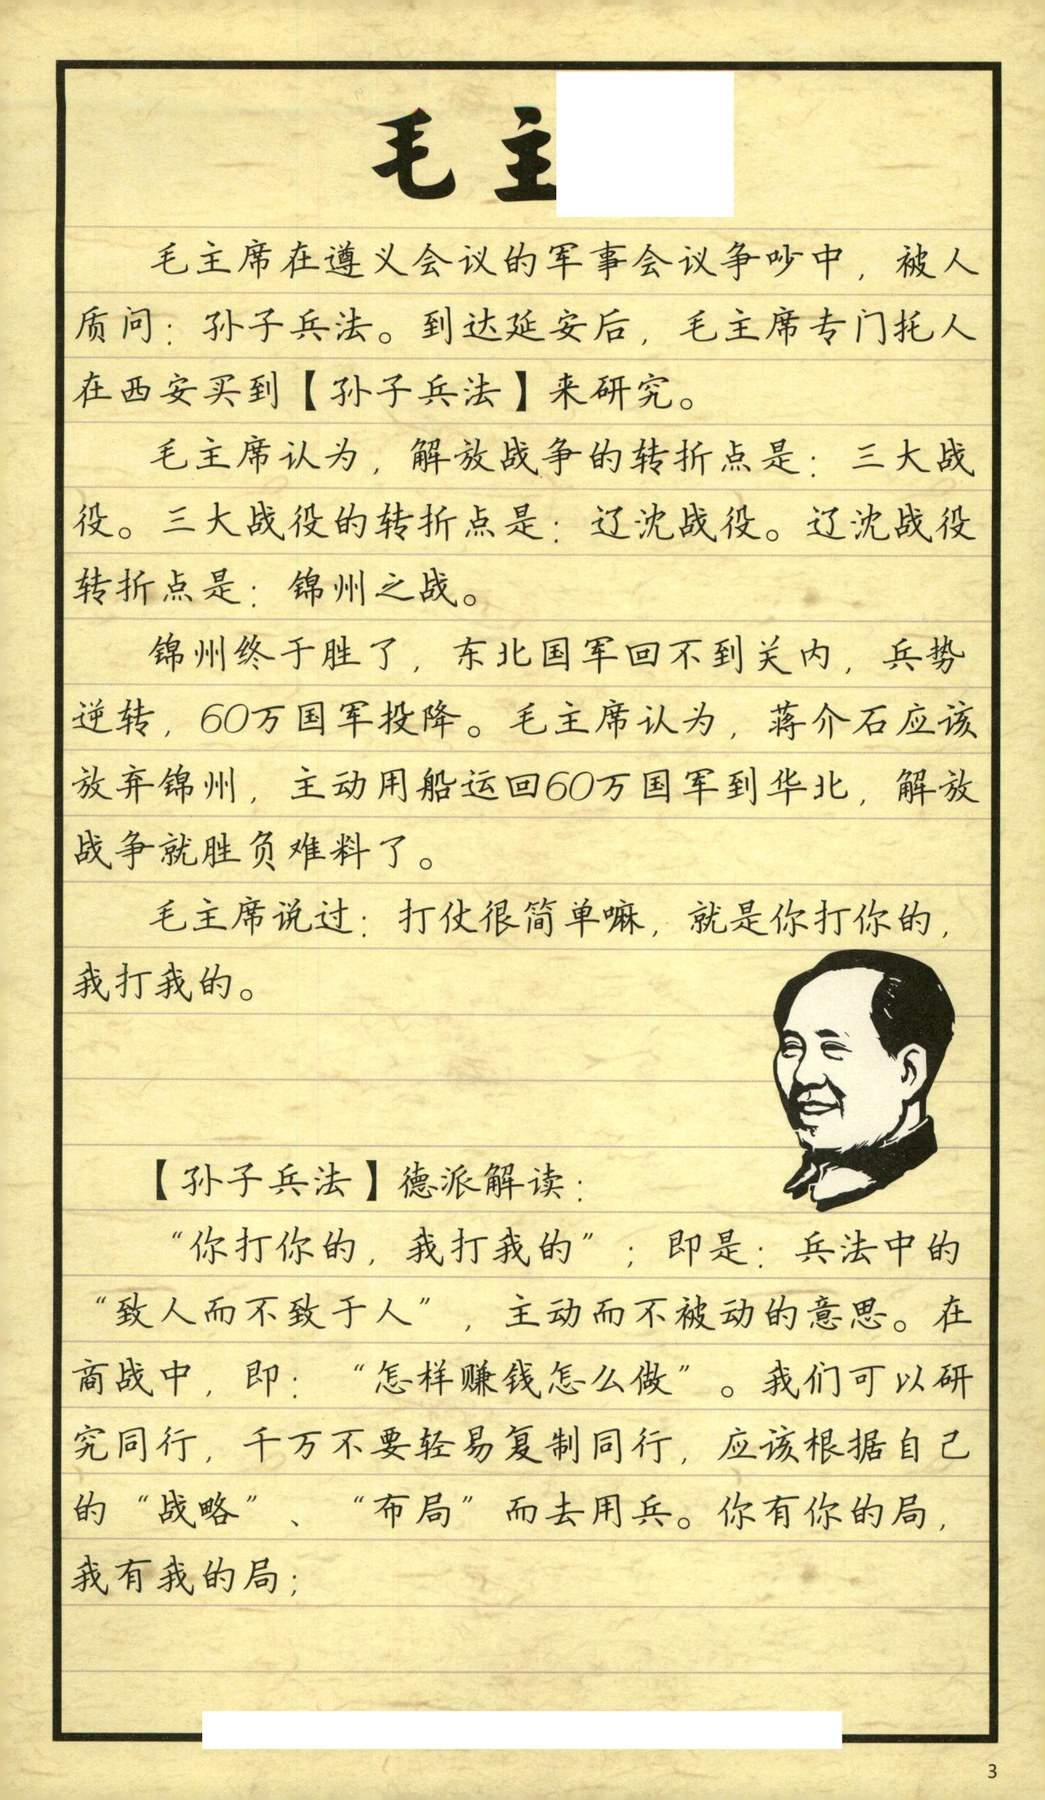 毛主
毛主席在遵义会议的军事会议争吵中，被人
质问：孙子兵法。到达延安后，毛主席专门托人
在西安买到【孙子兵法】来研究。
毛主席认为，解放战争的转折点是：三大战
役。三大战役的转折点是：辽沈战役。辽沈战役
转折点是：锦州之战。
锦州终于胜了，东北国军回不到关内，兵势
逆转，60万国军投降。毛主席认为，蒋介石应该
放弃锦州，主动用船运回60万国军到华北，解放
战争就胜负难料了。
毛主席说过：打仗很简单嘛，就是你打你的，
我打我的。
【孙子兵法】德派解读：
“你打你的，我打我的”；即是：兵法中的
“致人而不致于人”，主动而不被动的意思。在
商战中，即：“怎样赚钱怎么做”。我们可以研
究同行，千万不要轻易复制同行，应该根据自己
的“战略”、“布局”而去用兵。你有你的局，
我有我的局；
3